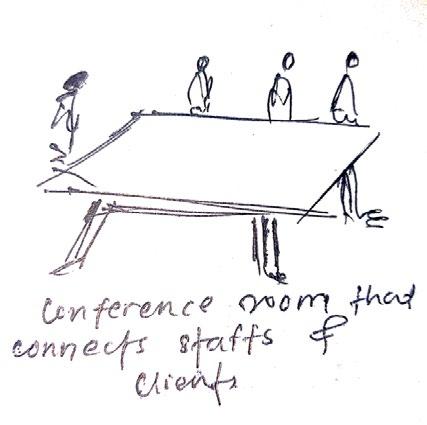 Conference room that
connects staffs &
clients